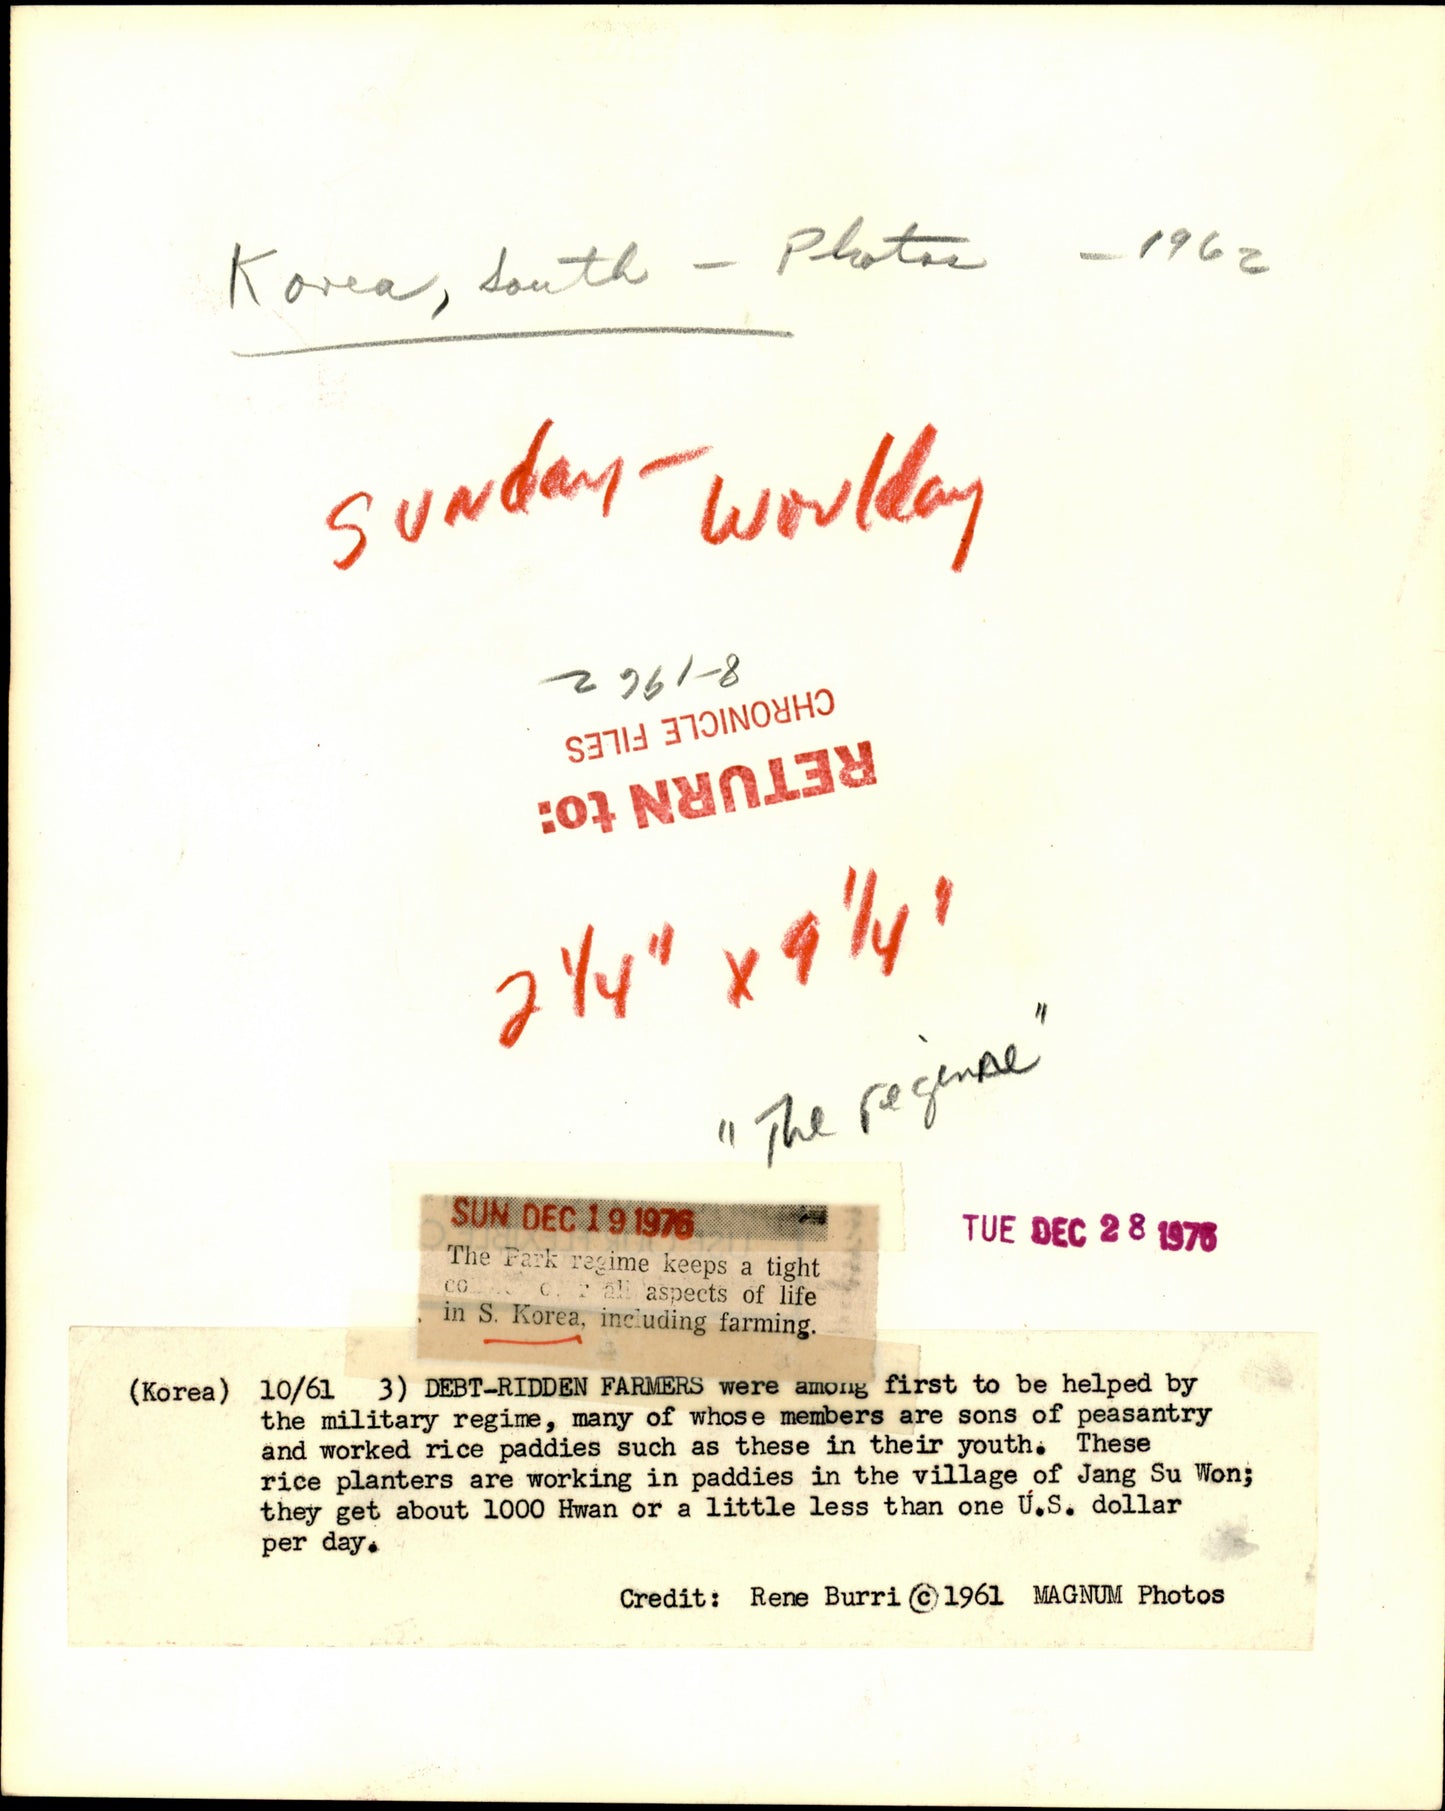 Korea, South - Photos - 1962
Sunday - World
8-1962
CHRONICLE FILES
RETURN to:
2 1/4" x 9 1/4"
"The regime"
SUN DEC 19 1976
TUE DEC 28 1976
The Park regime keeps a tight
all aspects of life
in S. Korea, including farming.
(Korea) 10/61 3) DEBT-RIDDEN FARMERS were among first to be helped by
the military regime, many of whose members are sons of peasantry
and worked rice paddies such as these in their youth. These
rice planters are working in paddies in the village of Jang Su Won;
they get about 1000 Hwan or a little less than one U.S. dollar
per day.
Credit: Rene Burri © 1961 MAGNUM Photos